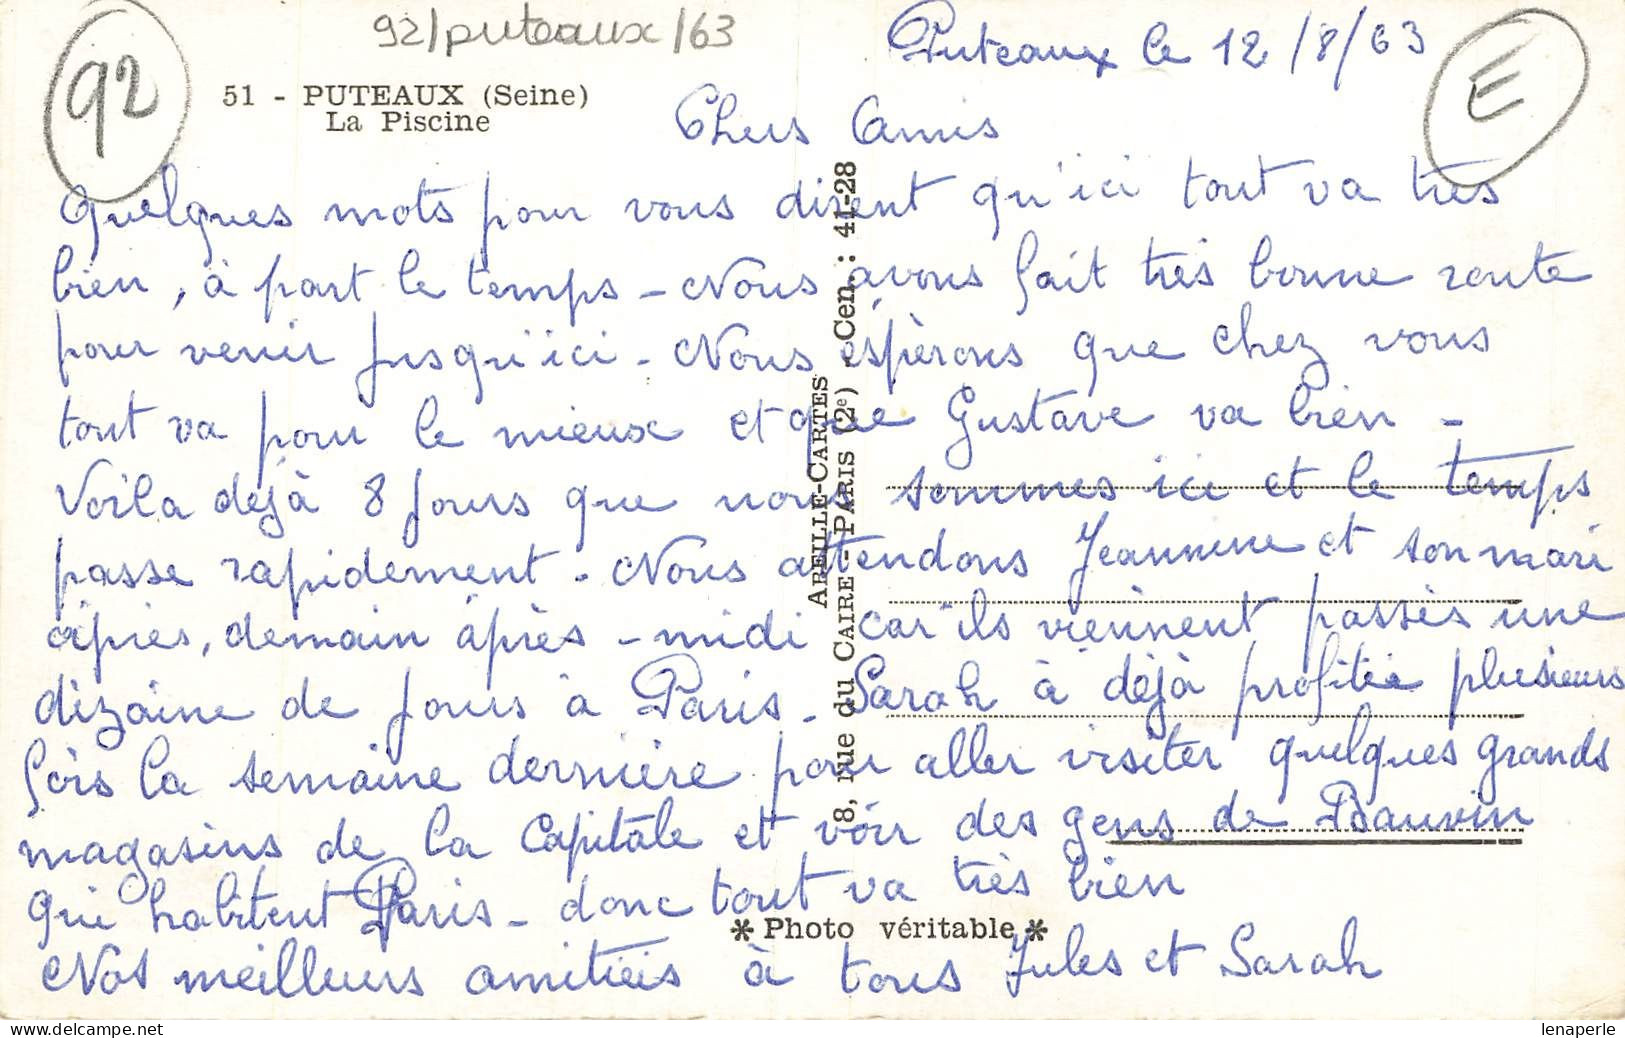 92/puteaux/63
92
E
51 - PUTEAUX (Seine)
La Piscine
Puteaux le 12/8/63
Chers Amis
Quelques mots pour vous dirent qu'ici tout va très
bien, à part le temps - Nous avons fait très bonne route
pour venir jusqu'ici - Nous éspèrons que chez vous
tout va pour le mieux et que Gustave va bien -
Voila déjà 8 jours que nous sommes ici et le temps
passe rapidement - Nous attendons Jeannine et son mari
après, demain après-midi car ils viennent passés une
dizaine de jours à Paris - Sarah à déjà profitée plusieurs
fois la semaine dernière pour aller visiter quelques grands
magasins de la Capitale et voir des gens de Bauvin
qui habitent Paris - donc tout va très bien
Nos meilleurs amitiés à tous Jules et Sarah
ABEILLE-CARTES
8, rue du CAIRE - PARIS (2e) - Cen. : 41-28
* Photo véritable *
delcampe.net
lenaperle